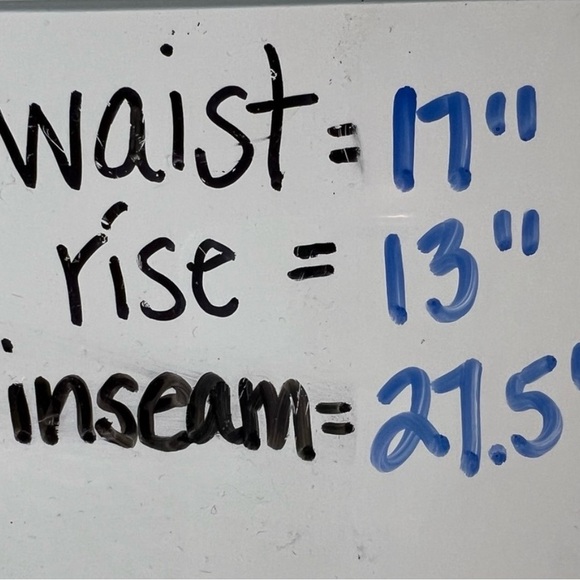 waist = 17"
rise = 13"
inseam = 27.5"